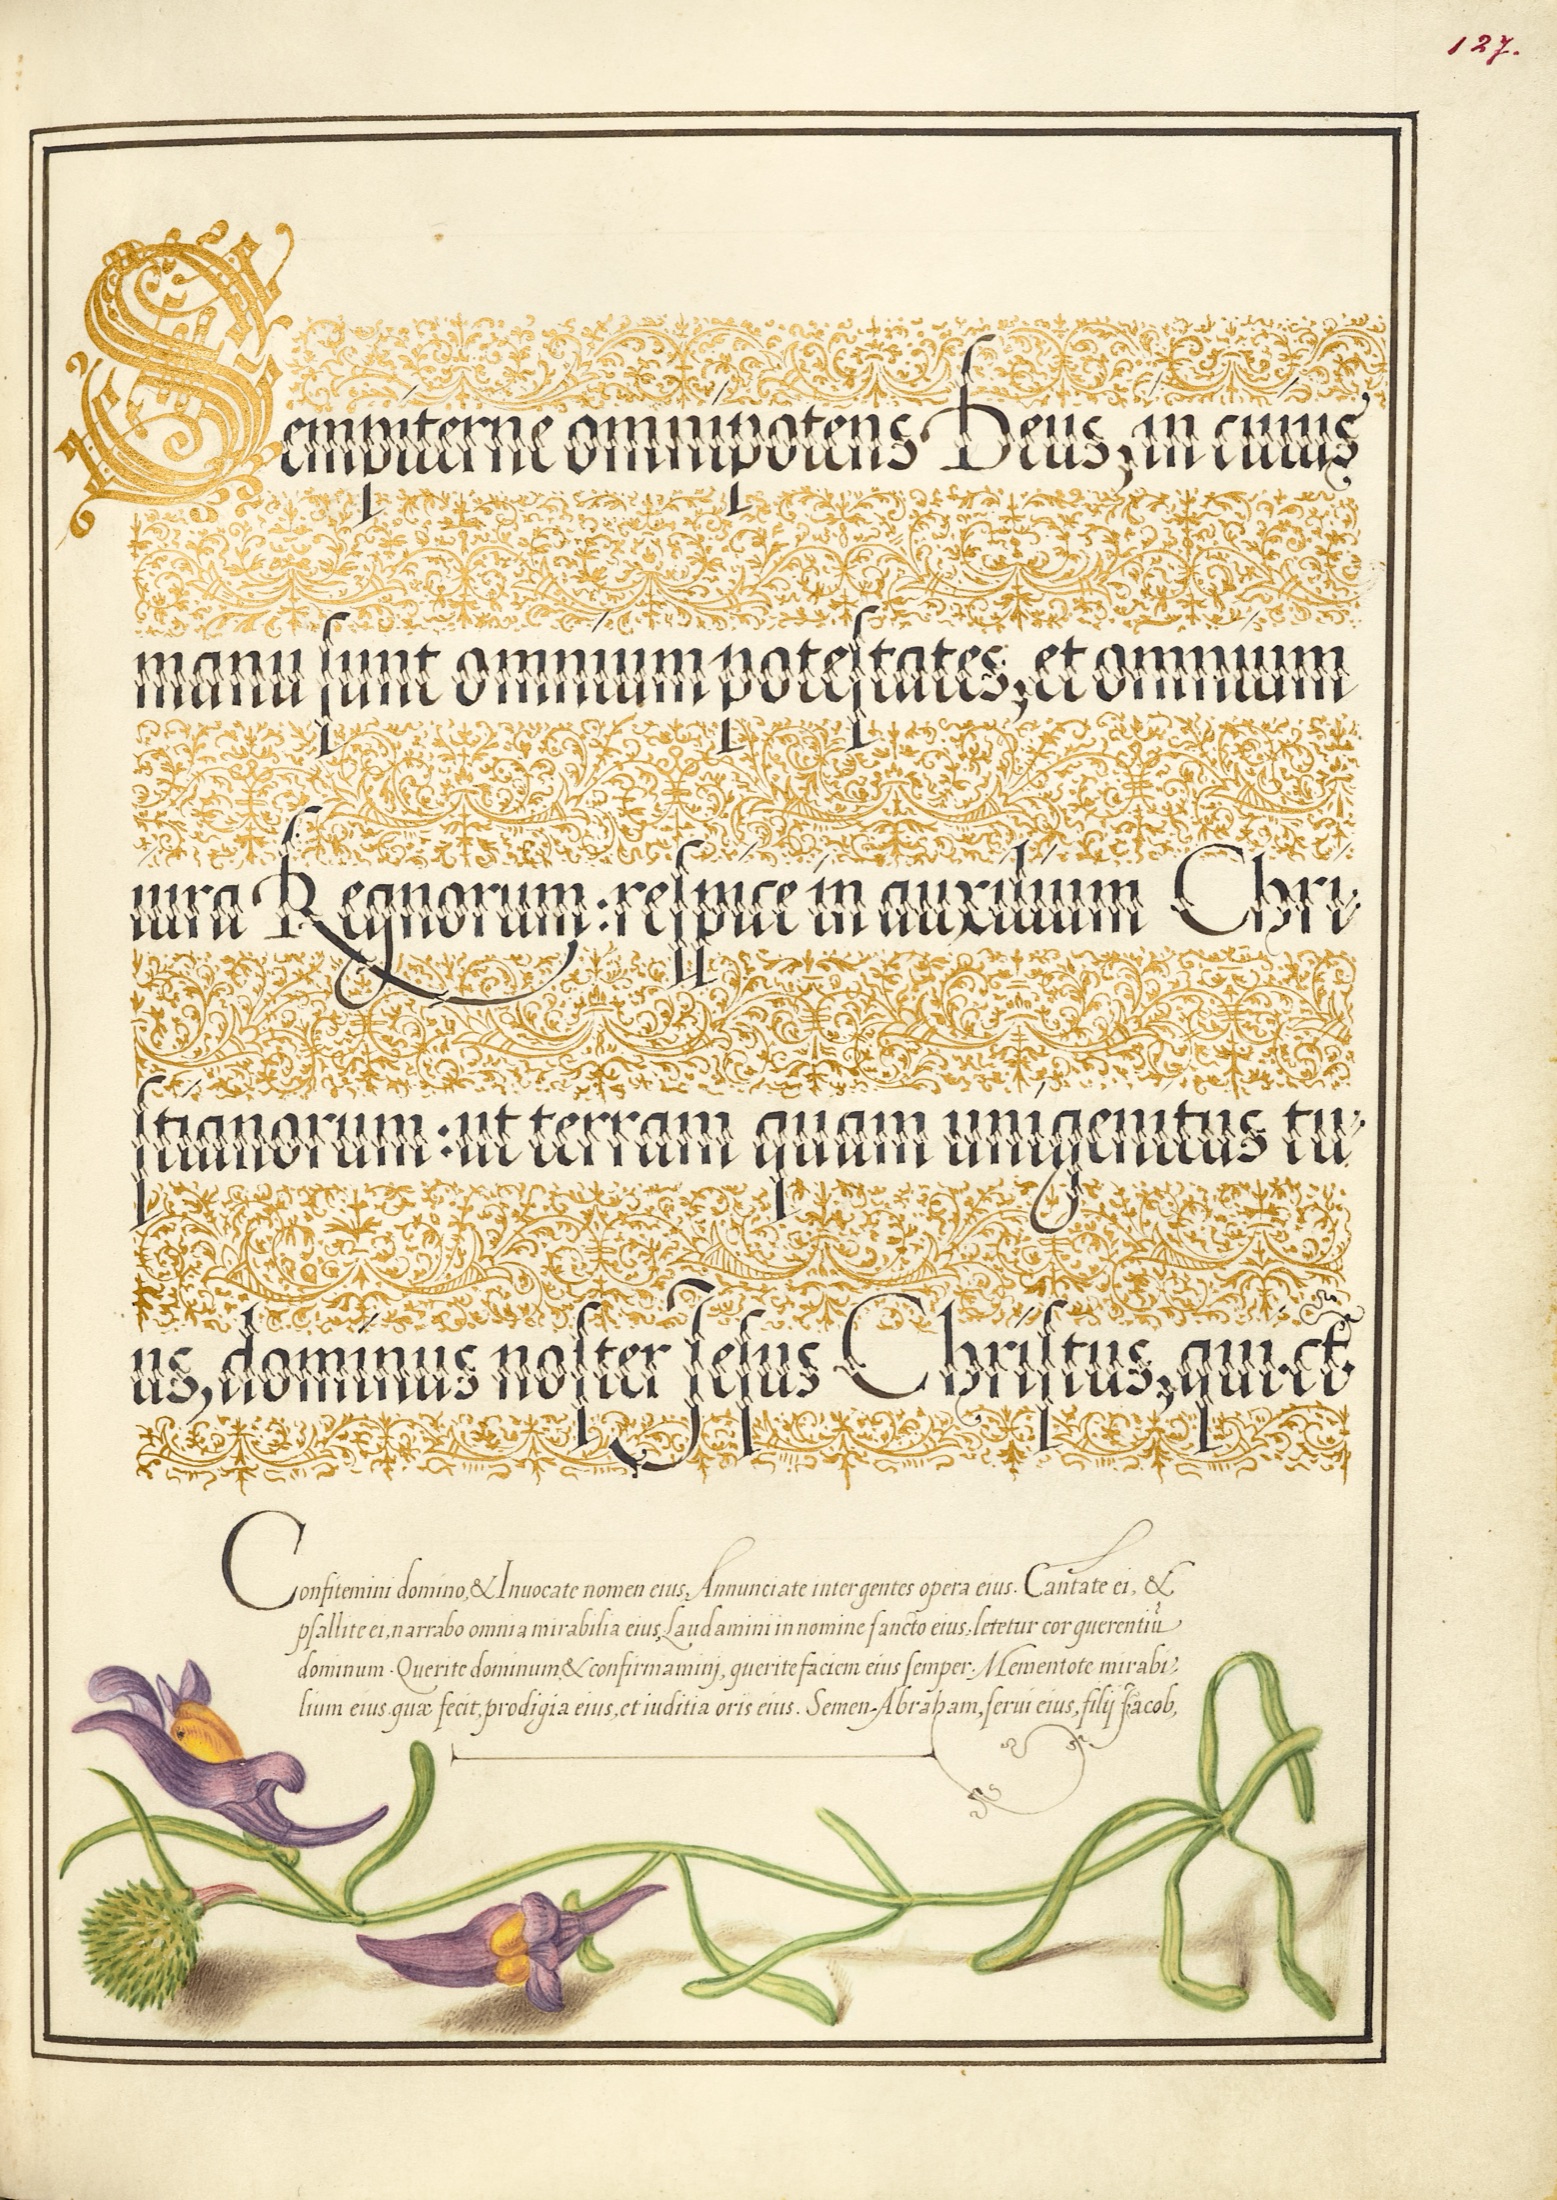 127.
Sempiterne omnipotens Deus, in cuius
manu sunt omnium potestates, et omnium
iura Regnorum: respice in auxilium Chri-
stianorum: ut terram quam unigenitus tu-
us, dominus noster Jesus Christus, qui
Confitemini domino, & Invocate nomen eius, Annunciate inter gentes opera eius. Cantate ei, &
psallite ei, narrabo omnia mirabilia eius, Laudamini in nomine sancto eius, letetur cor querentiū
dominum. Querite dominum, & confirmamini, querite faciem eius semper. Mementote mirabi-
lium eius quæ fecit, prodigia eius, et iuditia oris eius. Semen Abraham, servi eius, filij Jacob,